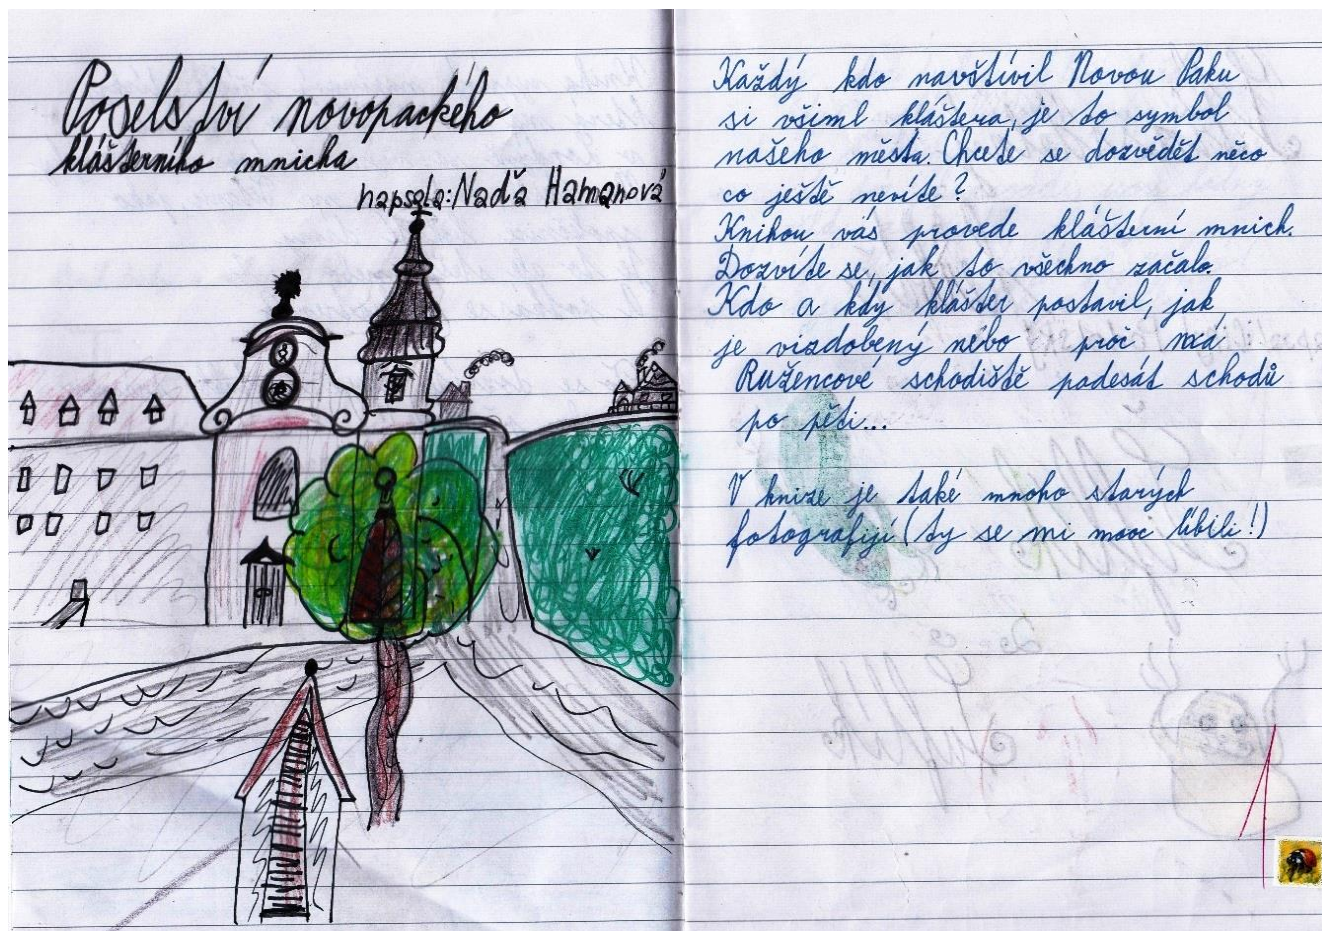 Poselství novopackého
klášterního mnicha
napsala: Naďa Hamanová
Každý kdo navštívil Novou Paku
si všiml kláštera, je to symbol
našeho města. Chcete se dozvědět něco
co ještě nevíte?
Knihou vás provede klášterní mnich.
Dozvíte se, jak to všechno začalo.
Kdo a kdy klášter postavil, jak
je vizdobený nebo proč má
Ružencové schodiště padesát schodů
po pěti...
V knize je také mnoho starých
fotografijí (ty se mi mooc líbili!)
1